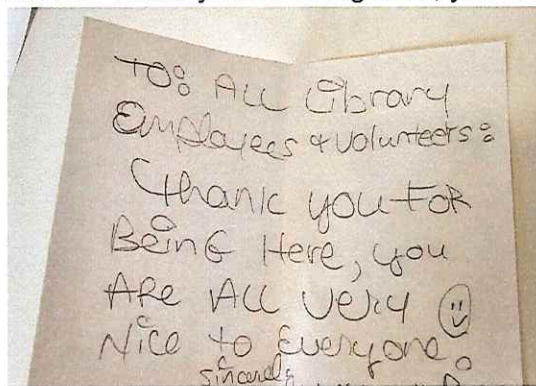 To: All Library
Employees & Volunteers:
Thank you For
Being Here, you
Are All very
Nice to Everyone!
Sincerely